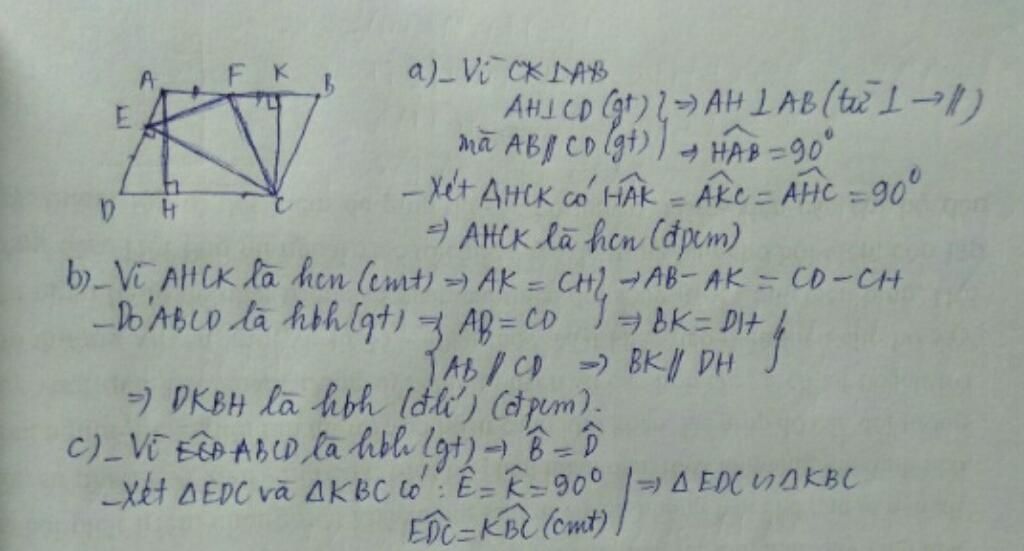 A F K B
E
D H C
a)_Vì CK⊥AB
AH⊥CD (gt) } ⇒ AH⊥AB (từ ⊥ → //)
mà AB//CD (gt) } ⇒ HAB̂ = 90°
– Xét AHCK có HÂK = AK̂C = AĤC = 90°
⇒ AHCK là hcn (đpcm)
b)_Vì AHCK là hcn (cmt) ⇒ AK = CH } → AB – AK = CD – CH
– Do ABCD là hbh (gt) ⇒ { AB = CD } ⇒ BK = DH }
{ AB // CD ⇒ BK // DH }
⇒ DKBH là hbh (đlí) (đpcm).
c)_Vì ABCD là hbh (gt) ⇒ B̂ = D̂
– Xét ΔEDC và ΔKBC có : Ê = K̂ = 90° | ⇒ ΔEDC ∽ ΔKBC
ED̂C = KB̂C (cmt)